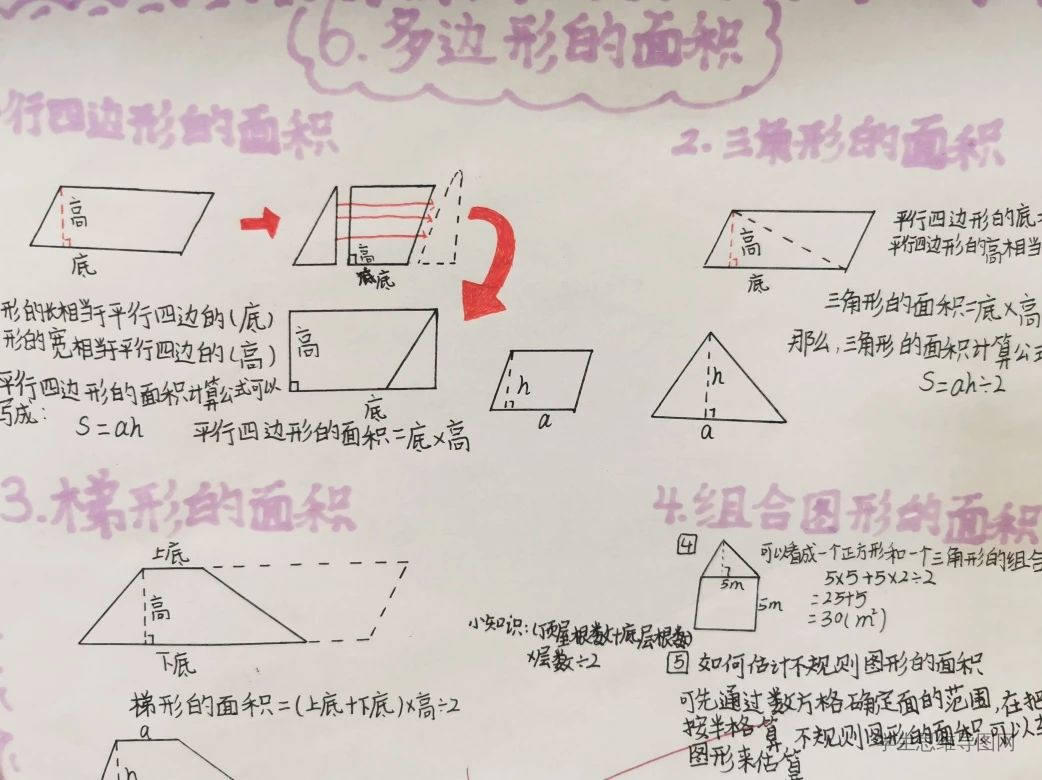 6.多边形的面积
行四边形的面积
高
底
高
底
形的长相当于平行四边的(底)
形的宽相当于平行四边的(高)
高
底
平行四边形的面积计算公式可以
写成:
S=ah
平行四边形的面积=底×高
h
a
2.三角形的面积
高
底
平行四边形的底=
平行四边形的高相当
三角形的面积=底×高
那么,三角形的面积计算公式
S=ah÷2
h
a
3.梯形的面积
上底
高
下底
梯形的面积=(上底+下底)×高÷2
a
h
小知识:(顶层根数+底层根数)
×层数÷2
4.组合图形的面积
4
可以看成一个正方形和一个三角形的组合
5m
5m
5×5+5×2÷2
=25+5
=30(m²)
5 如何估计不规则图形的面积
可先通过数方格确定面的范围,在把
按半格算 不规则图形的面积可以
图形来估算
思维导图网